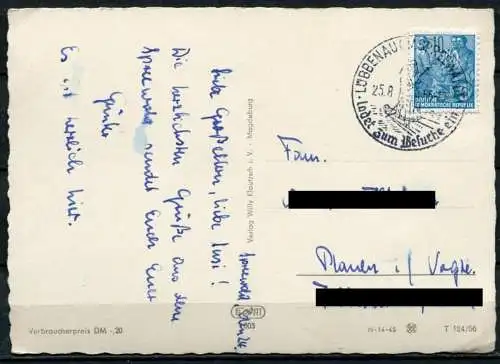 Spreewald,
Liebe Großeltern, liebe Susi!
Die herzlichsten Grüße aus dem
Spreewald sendet Euch Euer
Günter
Es ist herrlich hier.
Verbraucherpreis DM -,20
Verlag Willy Klautzsch i. V. - Magdeburg
LÜBBENAU (SPREEWALD)
25.8
ladet zum Besuche ein
DEUTSCHE
DEMOKRATISCHE REPUBLIK
Fam.
Plauen i/ Vogtl.
IV-14-45
T 124/56